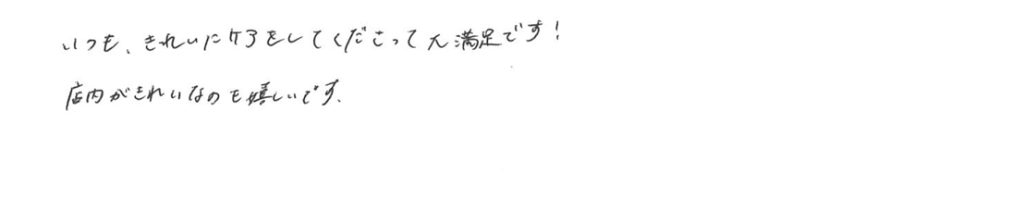 いつも、きれいにケアをしてくださって大満足です！
店内がきれいなのも嬉しいです。